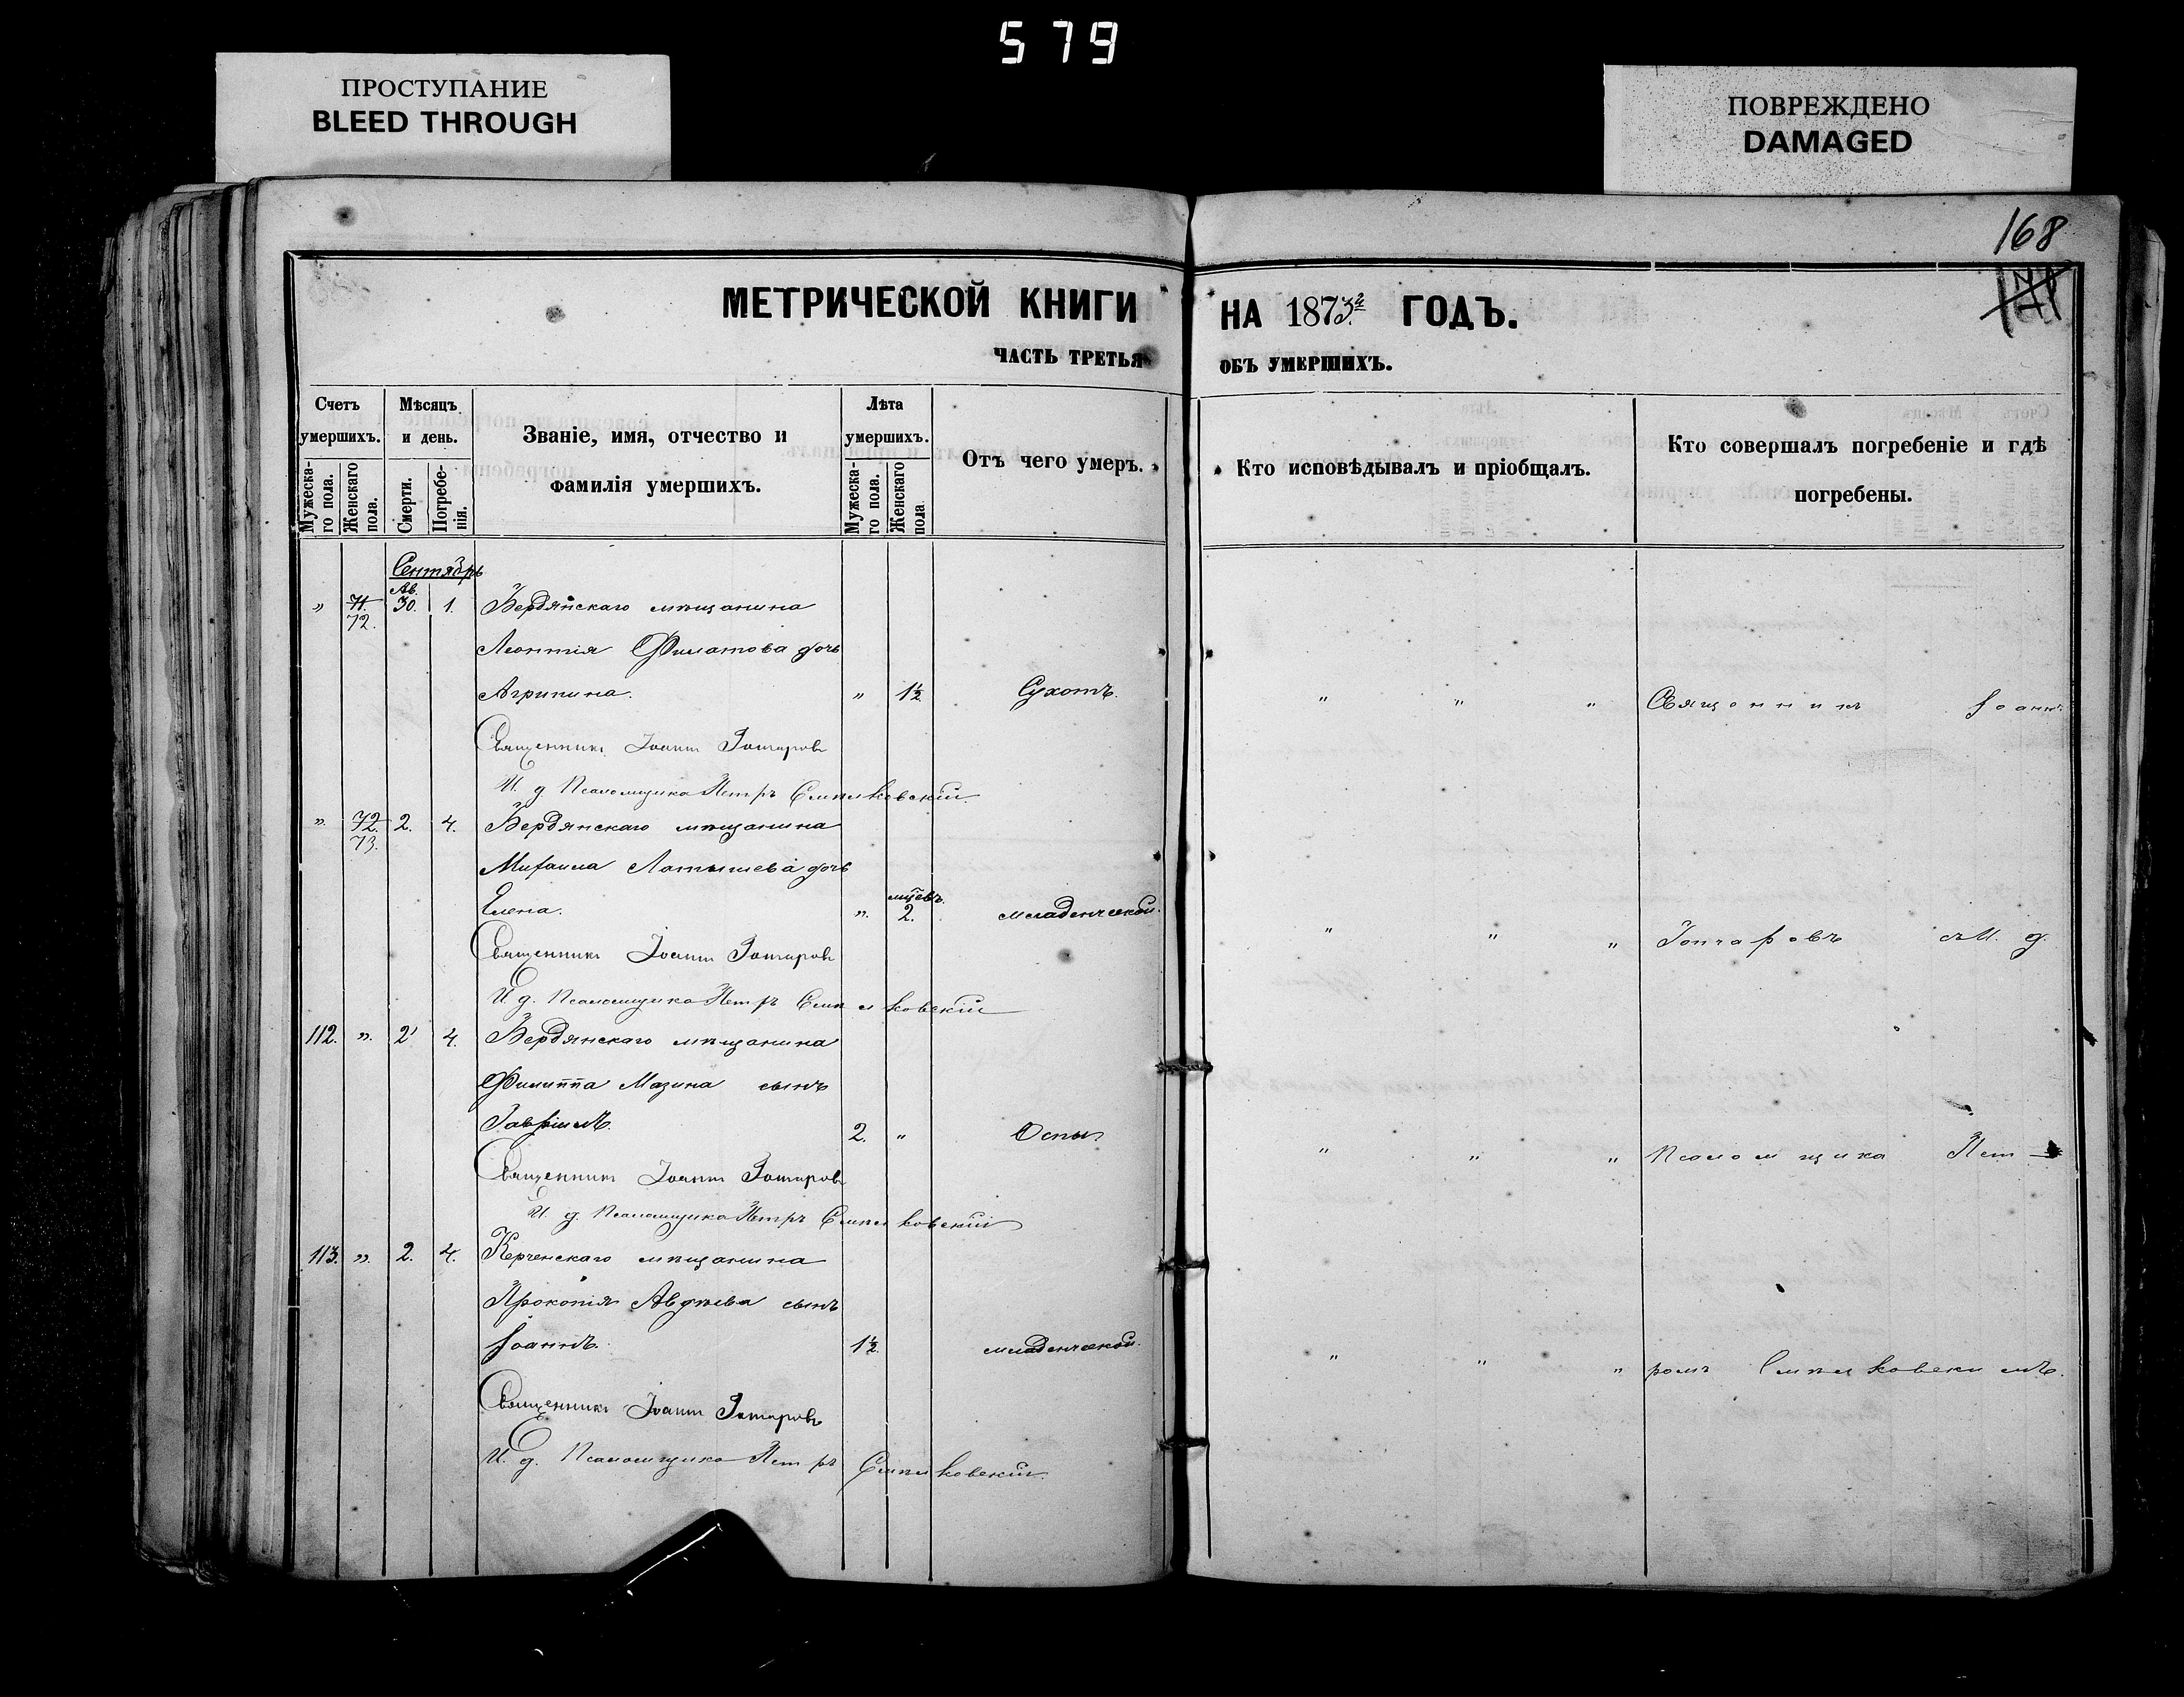 579
ПРОСТУПАНИЕ
BLEED THROUGH
ПОВРЕЖДЕНО
DAMAGED
168
171
МЕТРИЧЕСКОЙ КНИГИ НА 1873й ГОДЪ.
ЧАСТЬ ТРЕТЬЯ ОБЪ УМЕРШИХЪ.
Счетъ умершихъ.
Мужеска-го пола.
Женскаго пола.
Мѣсяцъ и день.
Смерти.
Погребе-нія.
Званіе, имя, отчество и
фамилія умершихъ.
Лѣта умершихъ.
Мужеска-го пола.
Женскаго пола
Отъ чего умеръ.
Кто исповѣдывалъ и пріобщалъ.
Кто совершалъ погребеніе и гдѣ
погребены.
Сентябрь
Ав.
„ 71. 30. 1. Бердянскаго мѣщанина
72.
Леонтія Филатова дочь
Агрипина. „ 1½ Сухотъ. „ „ „ Священникъ Іоаннъ
Священникъ Іоаннъ Гончаровъ
И. д. Псаломщика Петръ Стпиковскій
„ 72. 2. 4. Бердянскаго мѣщанина
73.
Михаила Латышева дочь
мцевъ
Елена. „ 2. младенческой. „ „ „ Гончаровъ съ И. д.
Священникъ Іоаннъ Гончаровъ
И. д. Псаломщика Петръ
112. „ 2 4. Бердянскаго мѣщанина
Филиппа Мазина сынъ
Гавріилъ. 2. „ Оспы „ „ „ Псаломщика Пет-
Священникъ Іоаннъ Гончаровъ
И. д. Псаломщика Петръ
113. „ 2. 4. Керченскаго мѣщанина
Прокопія Авдѣева сынъ
Іоаннъ. 1½ младенческой. „ „ „ ромъ
Священникъ Іоаннъ Гончаровъ
И. д. Псаломщика Петръ